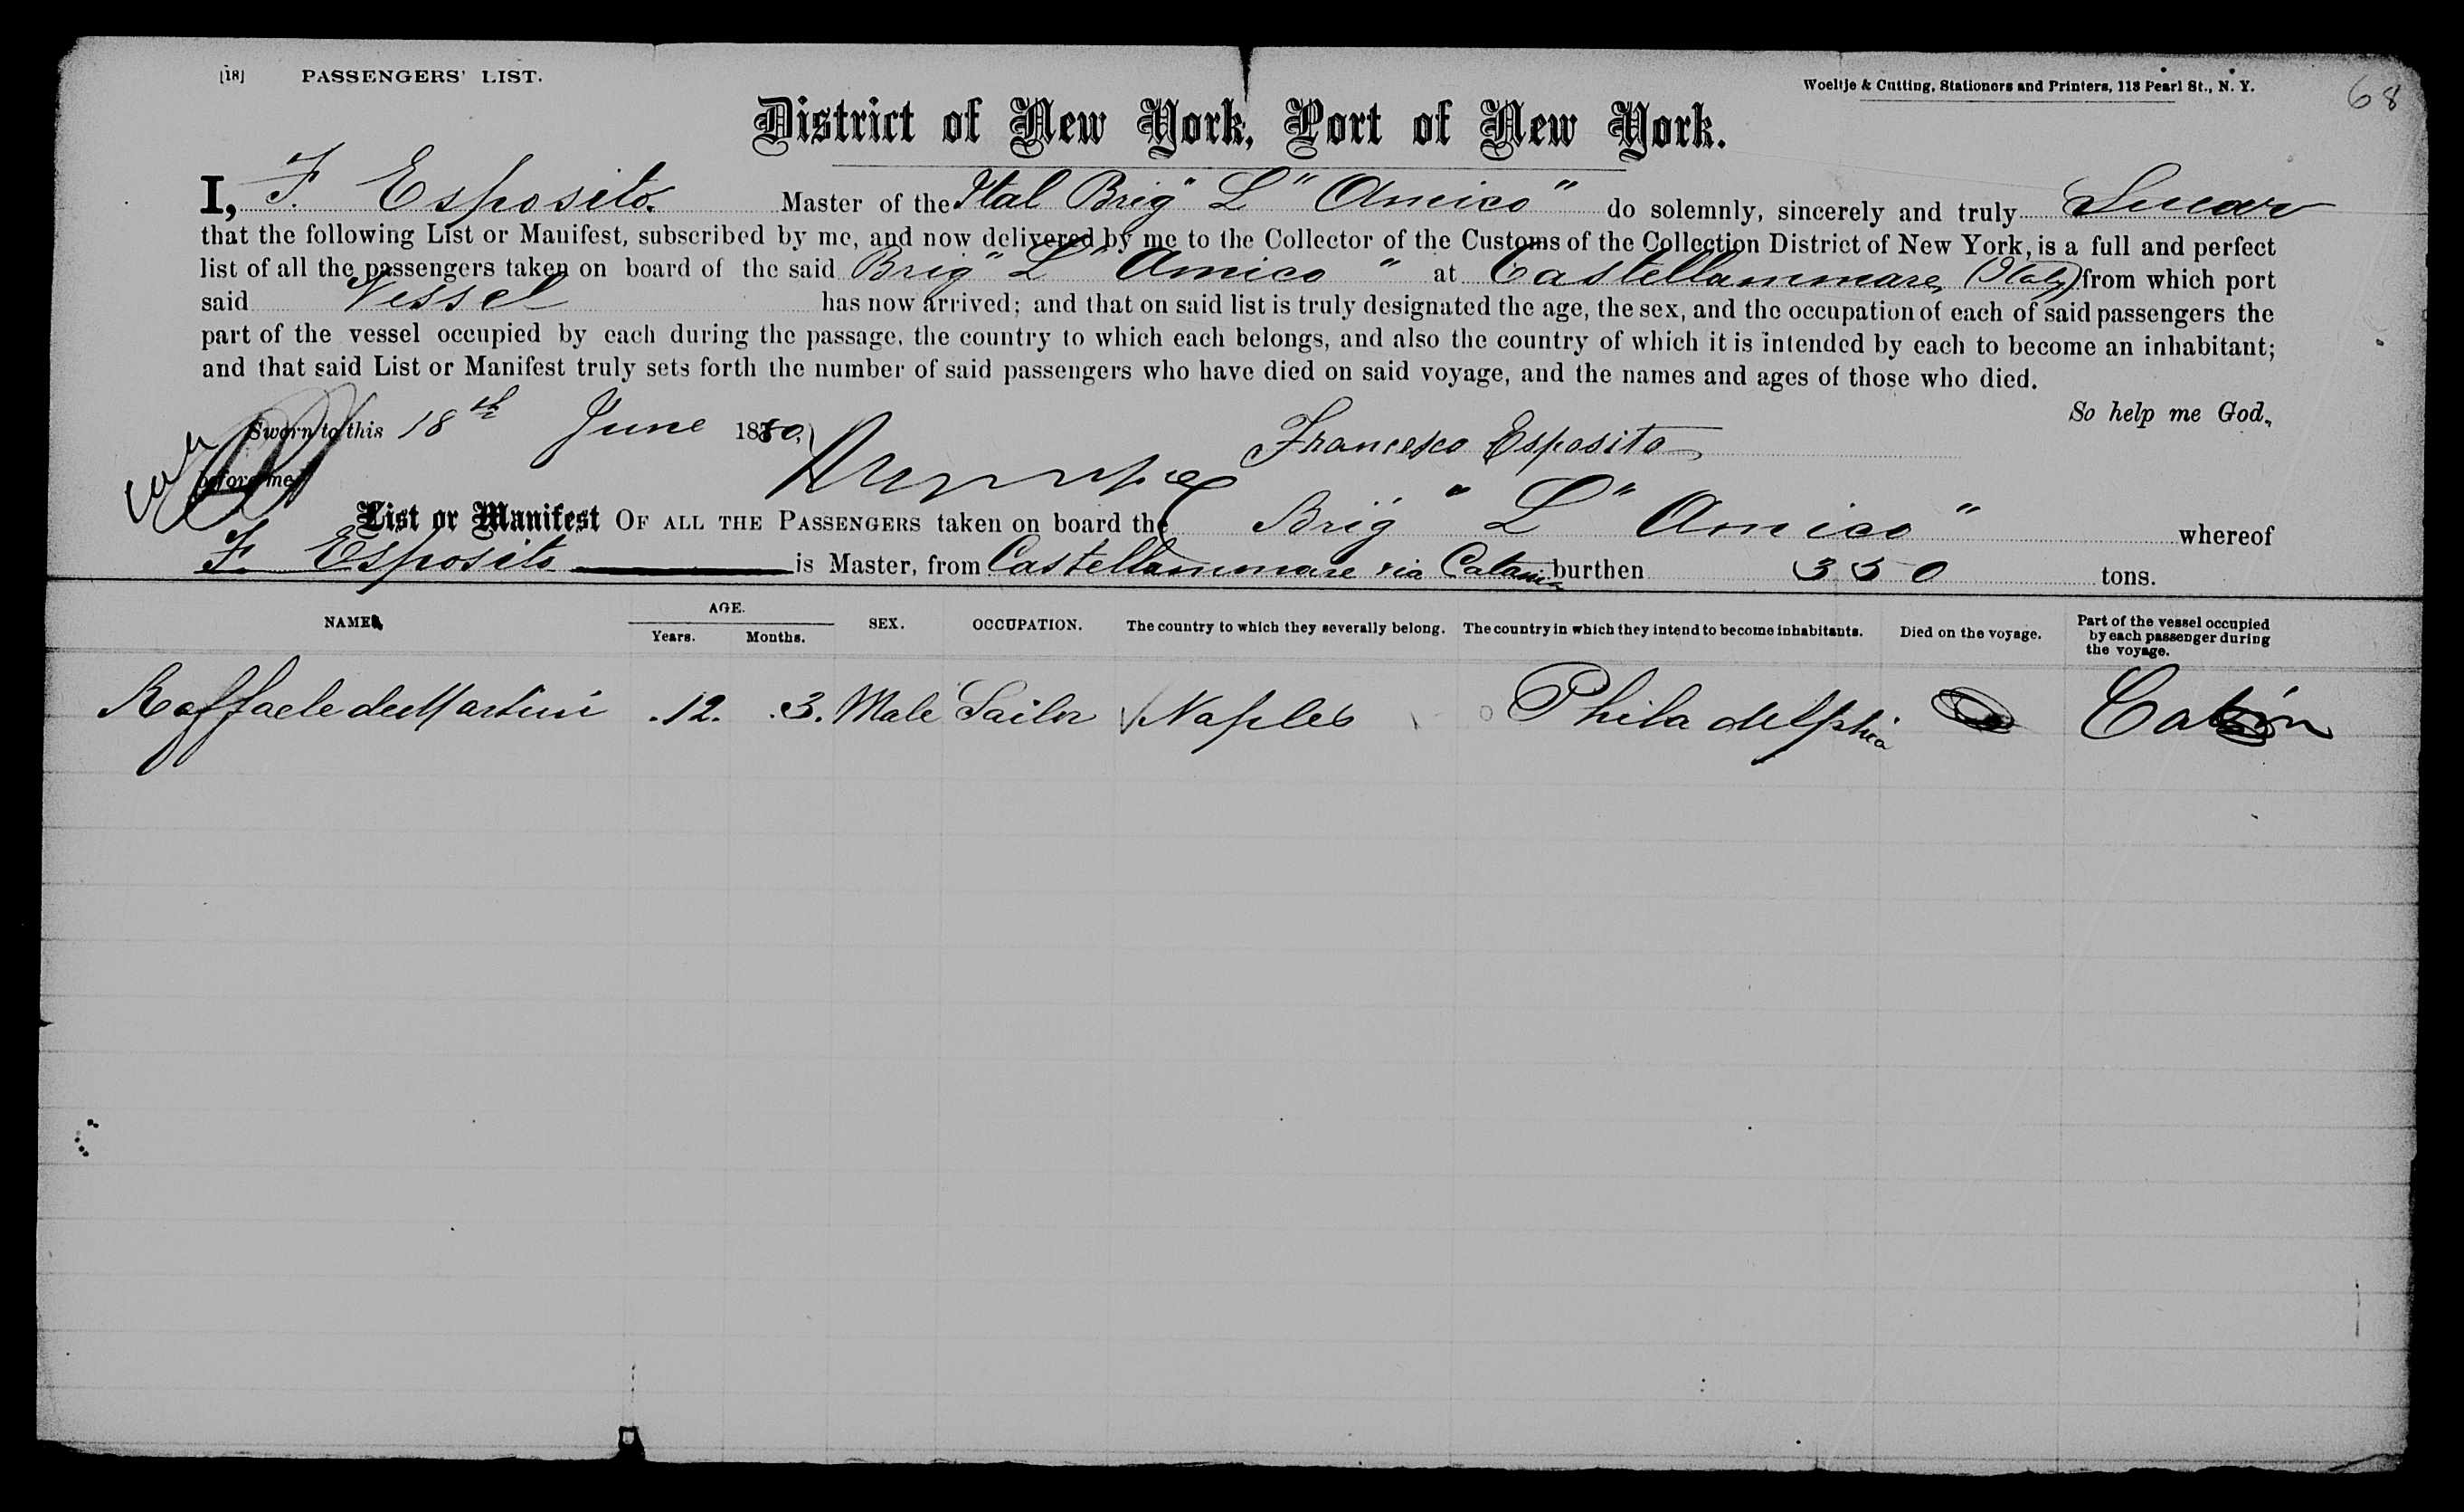 [18] PASSENGERS' LIST.
Woeltje & Cutting, Stationers and Printers, 113 Pearl St., N. Y.
68
District of New York, Port of New York.
I, F. Esposito Master of the Ital Brig " L " Amico " do solemnly, sincerely and truly Swear
that the following List or Manifest, subscribed by me, and now delivered by me to the Collector of the Customs of the Collection District of New York, is a full and perfect
list of all the passengers taken on board of the said Brig " L " Amico " at Castellammare, (Italy) from which port
said Vessel has now arrived; and that on said list is truly designated the age, the sex, and the occupation of each of said passengers the
part of the vessel occupied by each during the passage, the country to which each belongs, and also the country of which it is intended by each to become an inhabitant;
and that said List or Manifest truly sets forth the number of said passengers who have died on said voyage, and the names and ages of those who died.
So help me God.
Sworn to this 18th June 1880,
Francesco Esposito
before me
List or Manifest OF ALL THE PASSENGERS taken on board the Brig " L " Amico " whereof
F. Esposito is Master, from Castellammare via Catania burthen 350 tons.
NAMES
AGE.
Years. Months.
SEX.
OCCUPATION.
The country to which they severally belong.
The country in which they intend to become inhabitants.
Died on the voyage.
Part of the vessel occupied
by each passenger during
the voyage.
Raffaele de Martini .12. .3. Male Sailor Naples Philadelphia Cabin